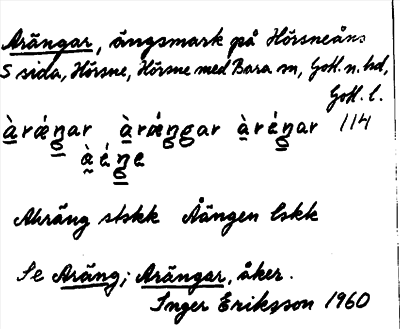 Arängar, ängsmark på Hörsneåns
S sida, Hörsne, Hörsne med Bara sn, Gotl. n. hd,
Gotl. l.
àrǽŋar àrǽŋgar àréŋar 114
Åhräng stskk Åängen lskk
Se Aräng; Arängar, åker.
Inger Eriksson 1960